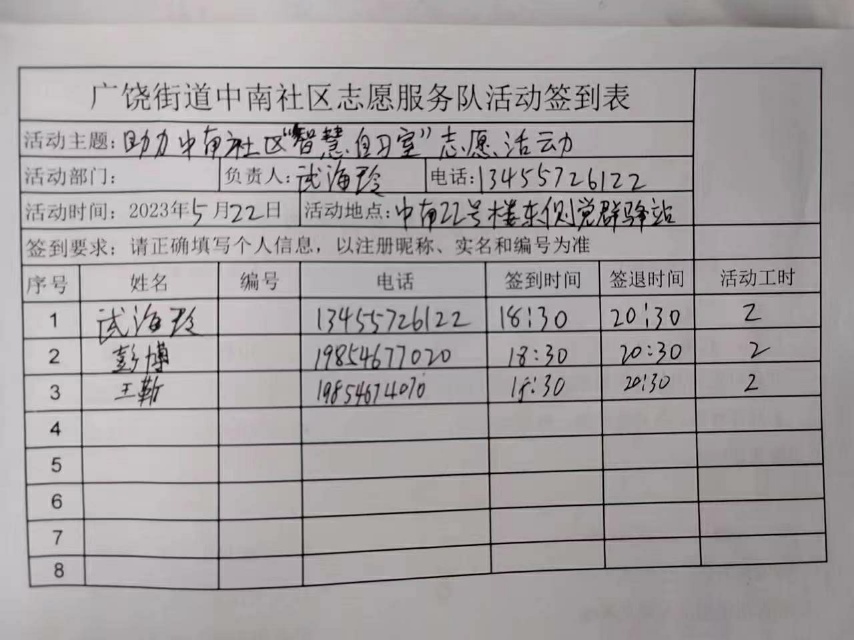 广饶街道中南社区志愿服务队活动签到表
活动主题：助力中南社区“智慧自习室”志愿活动
活动部门： 负责人：武海玲 电话：13455726122
活动时间：2023年5月22日 活动地点：中南22号楼东侧党群驿站
签到要求：请正确填写个人信息，以注册昵称、实名和编号为准
序号 姓名 编号 电话 签到时间 签退时间 活动工时
1 武海玲 13455726122 18:30 20:30 2
2 彭博 19854677020 18:30 20:30 2
3 王勒 19854674070 18:30 20:30 2
4
5
6
7
8